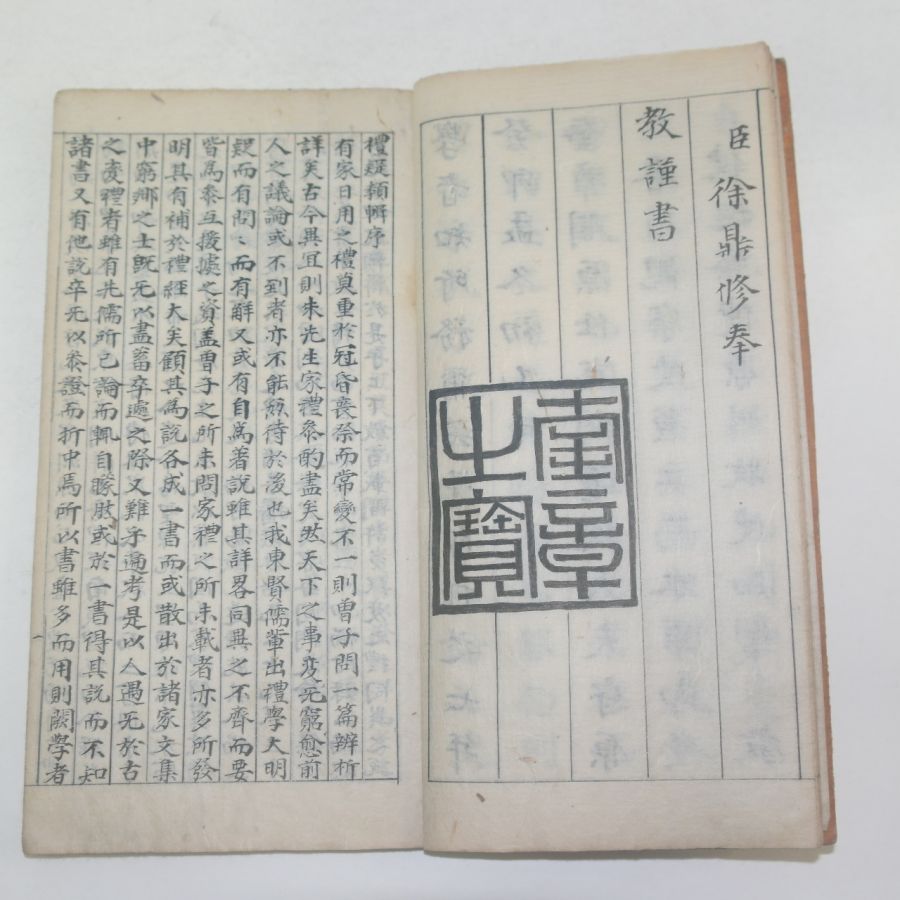 臣徐鼎修奉
教謹書
奎章
之寶
禮疑類輯序
有家日用之禮莫重於冠昏喪祭而常變不一則曽子問一篇辨析
詳矣古今異宜則朱先生家禮叅酌盡矣然天下之事変无窮愈前
人之議論或不到者亦不能無待於後也我東賢儒輩出禮學大明
疑而有問〻而有觧又或有自為著說雖其詳畧同異之不齊而要
皆為叅互援據之資盖曽子之所未問家禮之所未載者亦多所發
明其有補於禮經大矣顧其為說各成一書而或散出於諸家文集
中窮鄉之士既无以盡蓄卒遽之際又難乎遍考是以人遇无於古
之変禮者雖有先儒所已論而輒自矇肢或於一書得其說而不知
諸書又有他說卒无以叅證而折中焉所以書雖多而用則闕學者
一